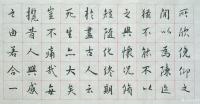 所欣俛仰之
間以為陳迹
猶不能不以
之興懷況脩
短隨化終期
於盡古人云
死生亦大矣
豈不痛哉每
攬昔人興感
之由若合一